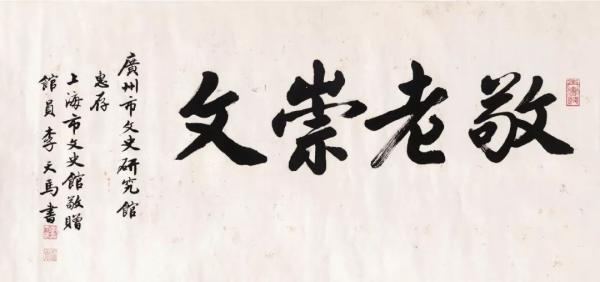 敬老崇文
廣州市文史研究館
惠存
上海市文史館敬贈
館員李天馬書